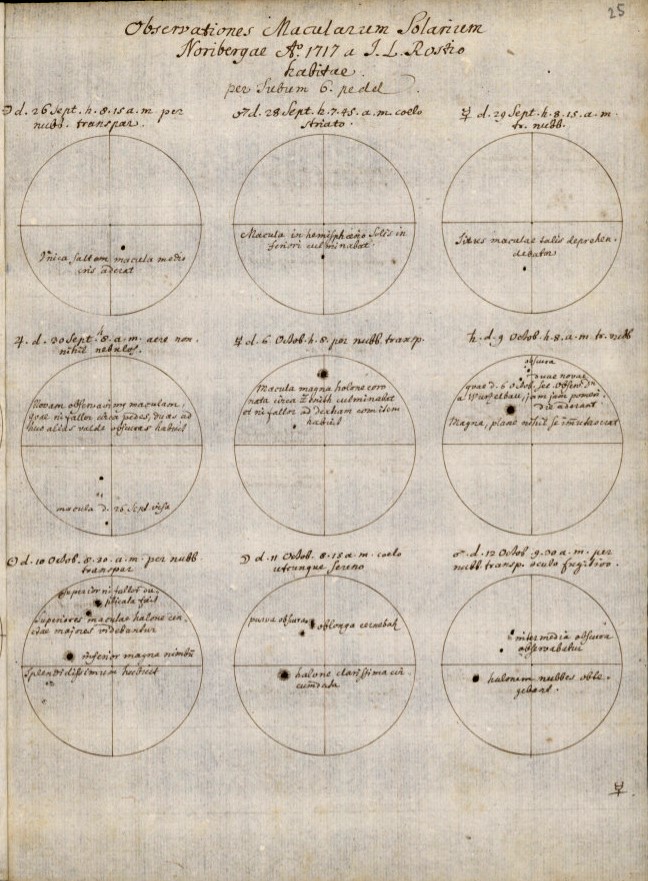 25
Observationes Macularum Solarium
Noribergae Aº. 1717 a J. L. Rostio
habitae.
per Tubum 6. pedel
☽ d. 26 Sept. h. 8. 15 a. m. per
nubb. transpar.
Unica saltem macula medio
cris aderat
♂ d. 28 Sept. h. 7. 45. a. m. coelo
striato.
Macula in hemisphaerio Solis in
feriori culminabat.
☿ d. 29 Sept. h. 8. 15. a. m.
tr. nubb.
Situs maculae talis deprehen.
debatur
♃. d. 30 Sept. h. 8. a. m. aere non
nihil nebulos.
Novam observavimus maculam,
quae ni fallor circa pedes, duas ad
huc alias valde obscuras habuit
macula d. 26 Sept. visa
☿ d. 6 Octob. h. 8. per nubb. transp.
Macula magna halone coro
nata circa culminabat
et ni fallor ad dextram comitem
habuit
♄. d. 9 Octob. h. 8. a. m. tr. nubb
obscura
duae novae
quae d. 6 Octob. sec. observ. Dn.
a Wurzelbau, jam jam
die aderant
Magna, plane nihil se immutaverat
☉ d. 10 Octob. 8. 20. a. m. per nubb.
transpar
Superior ni fallor du
plicata fuit
Superiores maculae halone
majores videbantur
inferior magna nimbum
splendidissimum habuit
☽ d. 11 Octob. 8. 15 a. m. coelo
utcunque sereno
parva obscura
oblonga cernebat
halone clarissima cir
cumdata
♂. d. 12 Octob. 9. 30 a. m. per
nubb. transp. oculo fugitivo.
intermedia obscura
observabatur
halonem nubbes obte.
gebant.
☿